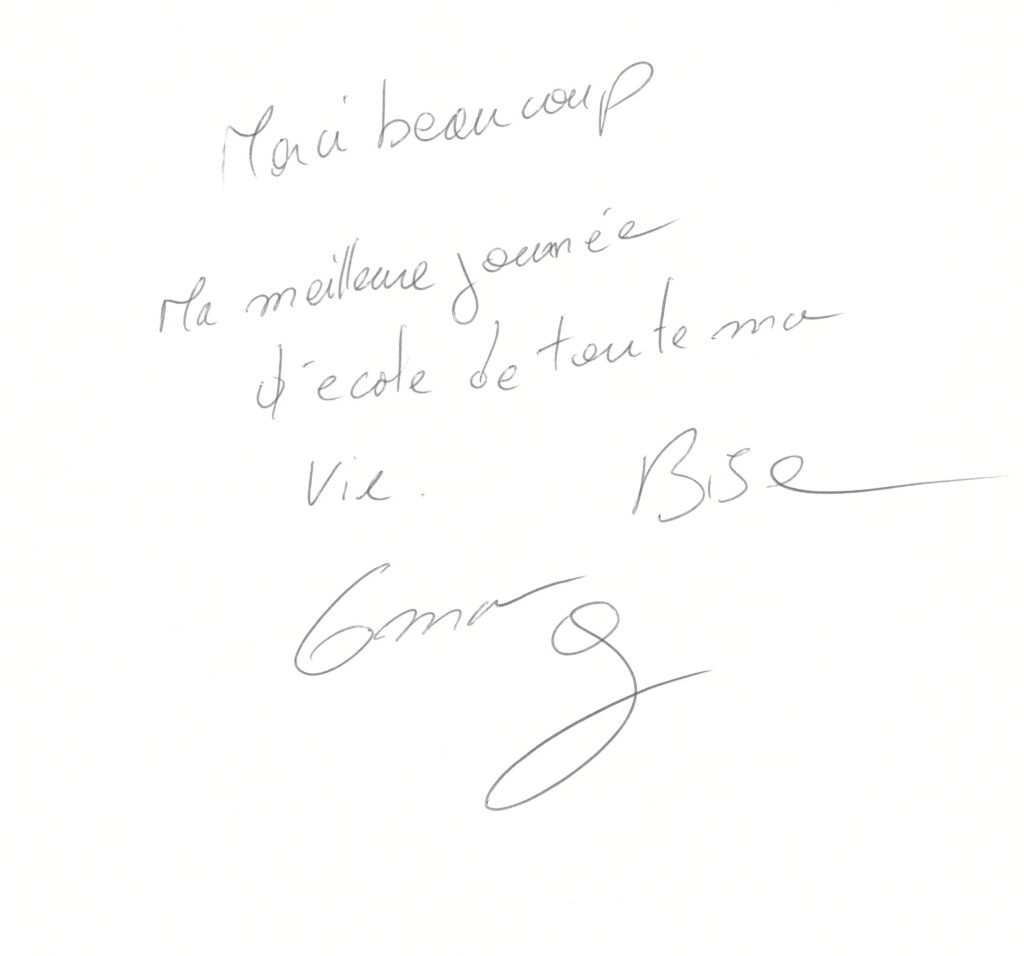 Merci beaucoup
Ma meilleure journée
d'école de toute ma
vie.
Bise